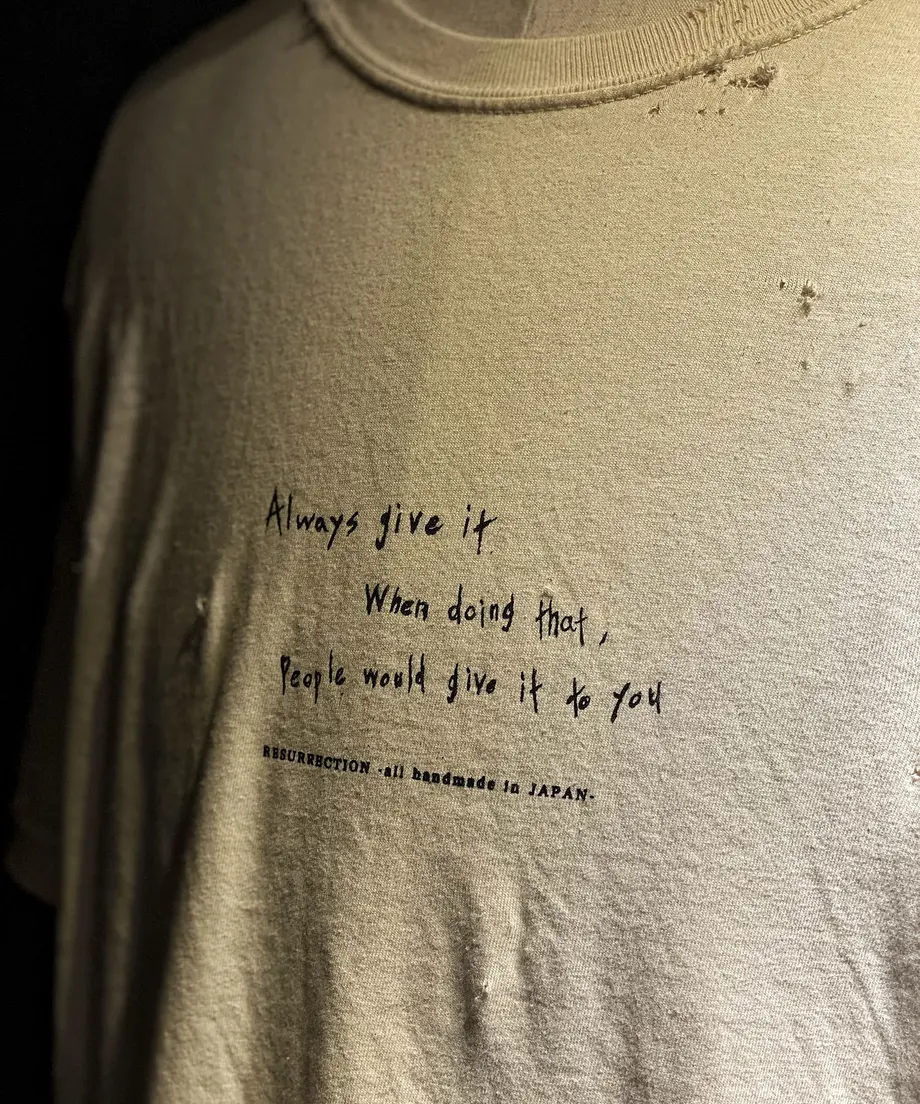 Always give it
When doing that,
People would give it to you
RESURRECTION -all handmade in JAPAN-